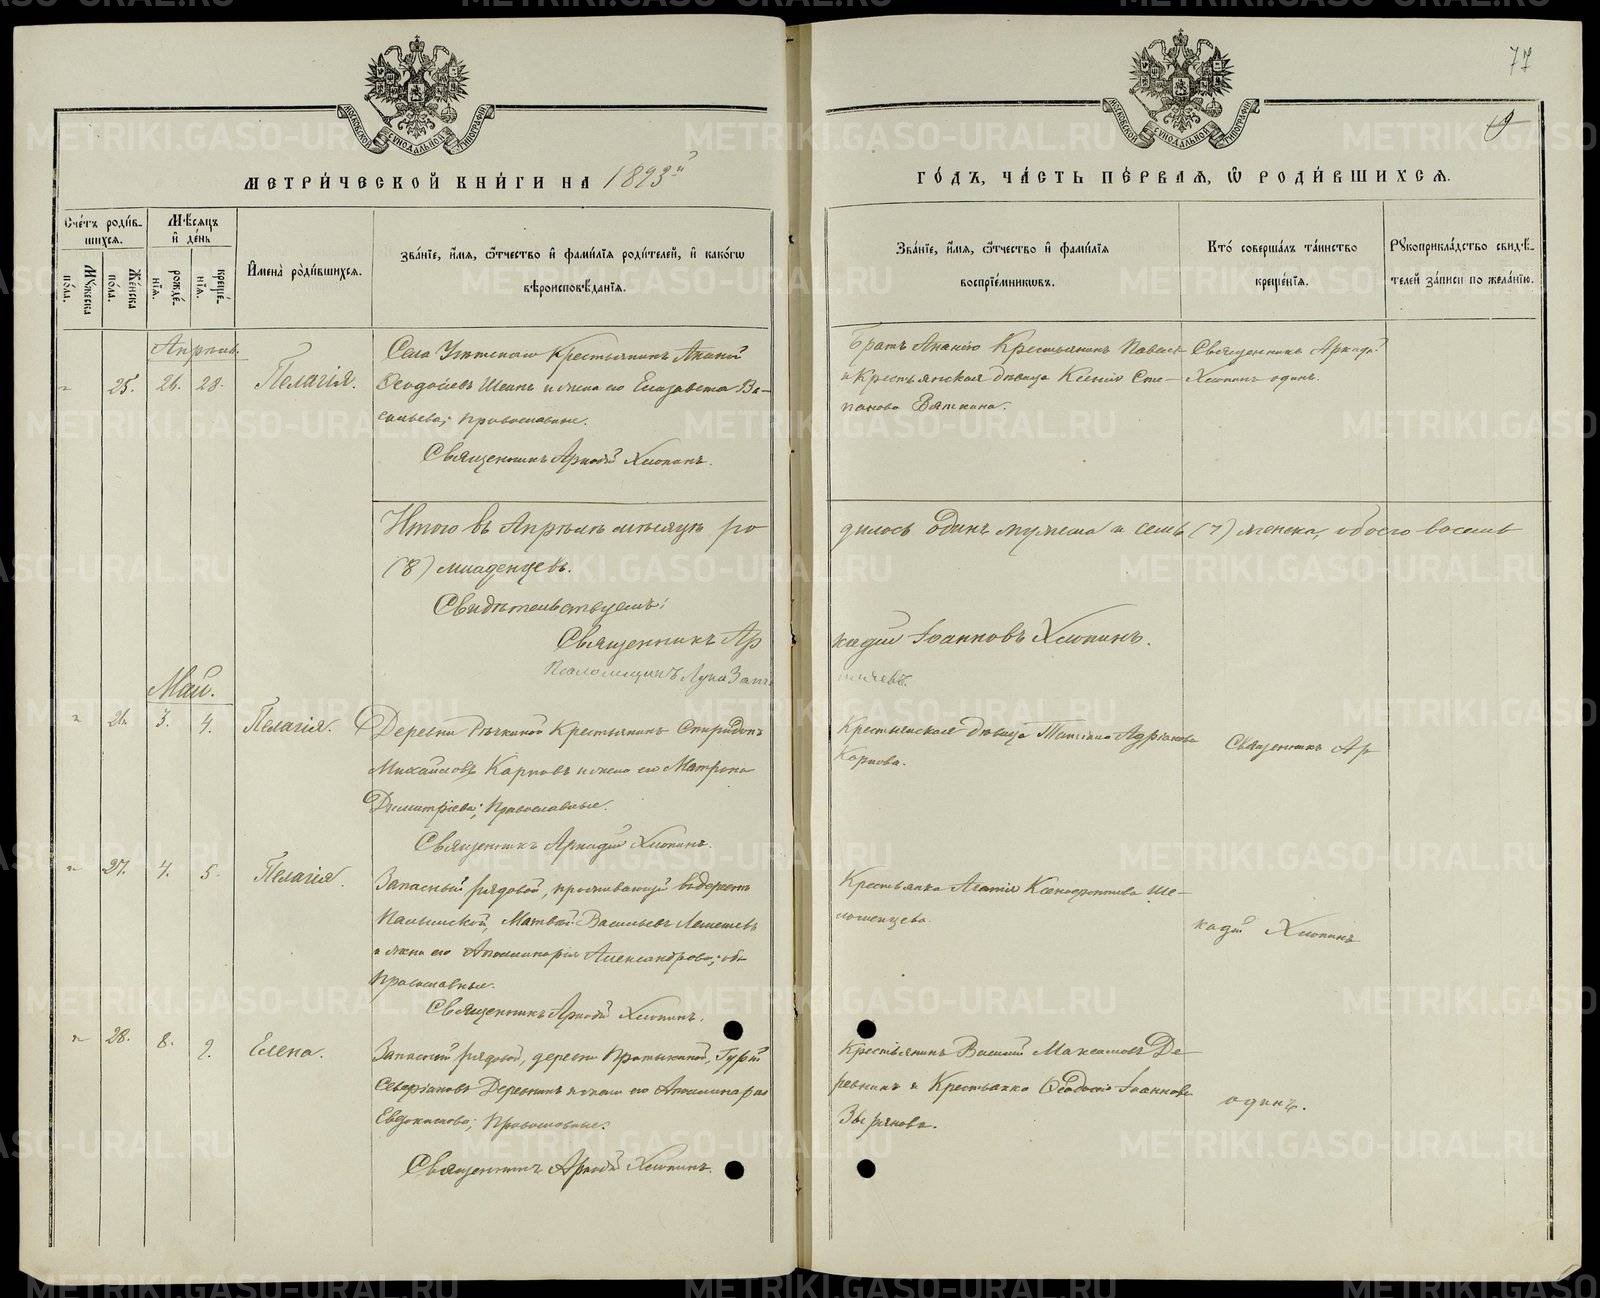 77
9
МЕТРИ́ЧЕСКОЙ КНИ́ГИ НА 1893й
ГО́ДЪ, ЧА́СТЬ ПЕ́РВАЯ, Ѽ РОДИ́ВШИХСЯ.
Сче́тъ роди́в-
шихся.
Мѣ́сяцъ
и҆ де́нь
Му́жеска по́ла.
Же́нска по́ла.
рожде́-нїѧ.
креще́-нїѧ.
И҆мена̀ роди́вшихся.
Зва́нїе, и҆́мя, ѻ҆́тчество и҆ фами́лїя роди́телей, и҆ како́гѡ
вѣроисповѣ́данїя.
Зва́нїе, и҆́мя, ѻ҆́тчество и҆ фами́лїя
воспрїе́мникѡвъ.
Кто̀ соверша́лъ та́инство
креще́нїя.
Рꙋкоприкла́дство свидѣ́-
телей за́писи по жела́нїю.
Апрѣль.
25. 26. 28. Пелагія.
Села Уктускаго Крестьянинъ Ананій
Ѳеодосіевъ и жена его Елизавета Ва-
сильева; православные.
Священникъ Аркадій Хлопинъ.
Братъ Ананіо Крестьянинъ Павелъ
и Крестьянская дѣвица Ксенія Сте-
панова Вяткина.
Священникъ Аркадій
Хлопинъ одинъ.
Итого въ Апрѣлѣ мѣсяцѣ ро
дилось одинъ мужеска и семь (7) женска, обоего восемь
(8) младенцевъ.
Свидѣтельствуемъ:
Священникъ Ар
кадій Іоанновъ Хлопинъ.
Псаломщикъ Лука
Май.
26. 3. 4. Пелагія.
Деревни Крестьянинъ Спиридонъ
Михайловъ Карповъ и жена его Матрона
Димитріева; Православные.
Священникъ Аркадій Хлопинъ.
Крестьянская дѣвица Татіана Адріанова
Карпова.
Священникъ Ар
27. 4. 5. Пелагія.
Запасный рядовой, проживающій въ деревнѣ
Матвѣй Васильевъ
и жена его Аполлинарія Александрова; оба
Православные.
Священникъ Аркадій Хлопинъ.
Крестьянка Агапія Ксенофонтова Ше-
ломенцева.
кадій Хлопинъ
28. 8. 9. Елена.
Запасный рядовой, деревни Гурій
Северіановъ Деревнинъ и жена его Аполлинарія
Евдокимова; Православные.
Священникъ Аркадій Хлопинъ.
Крестьянинъ Василій Максимовъ Де-
ревнинъ и Крестьянка Ѳеодосія Іоаннова
Зырянова.
одинъ.
METRIKI.GASO-URAL.RU